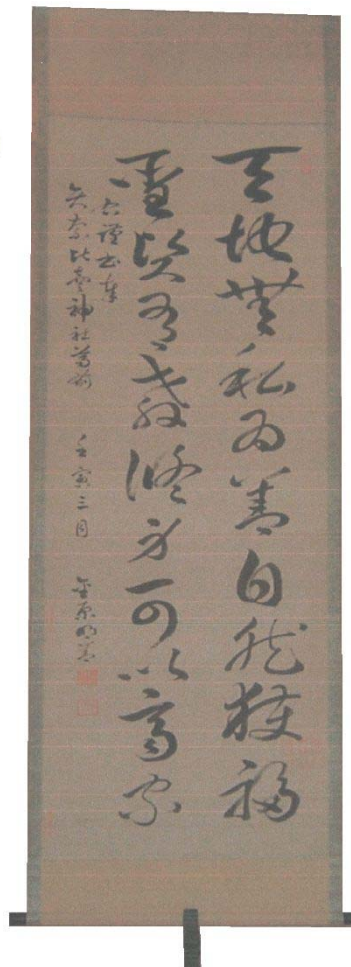 天地無私為善自然獲福
聖賢有教修身可以齊家
右謹書奉
矢奈比賣神社 壬寅三月 金原明善